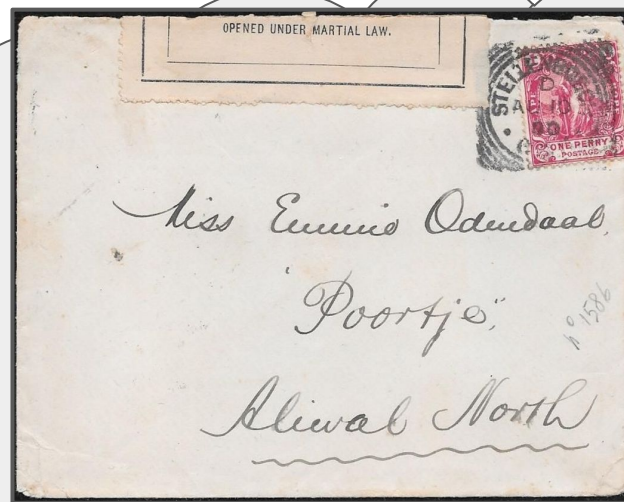 OPENED UNDER MARTIAL LAW.
STELLENBOSCH
D
AU 10
00
ONE PENNY
POSTAGE
Miss Emmie Odendaal,
"Poortje",
Aliwal North
No 1586